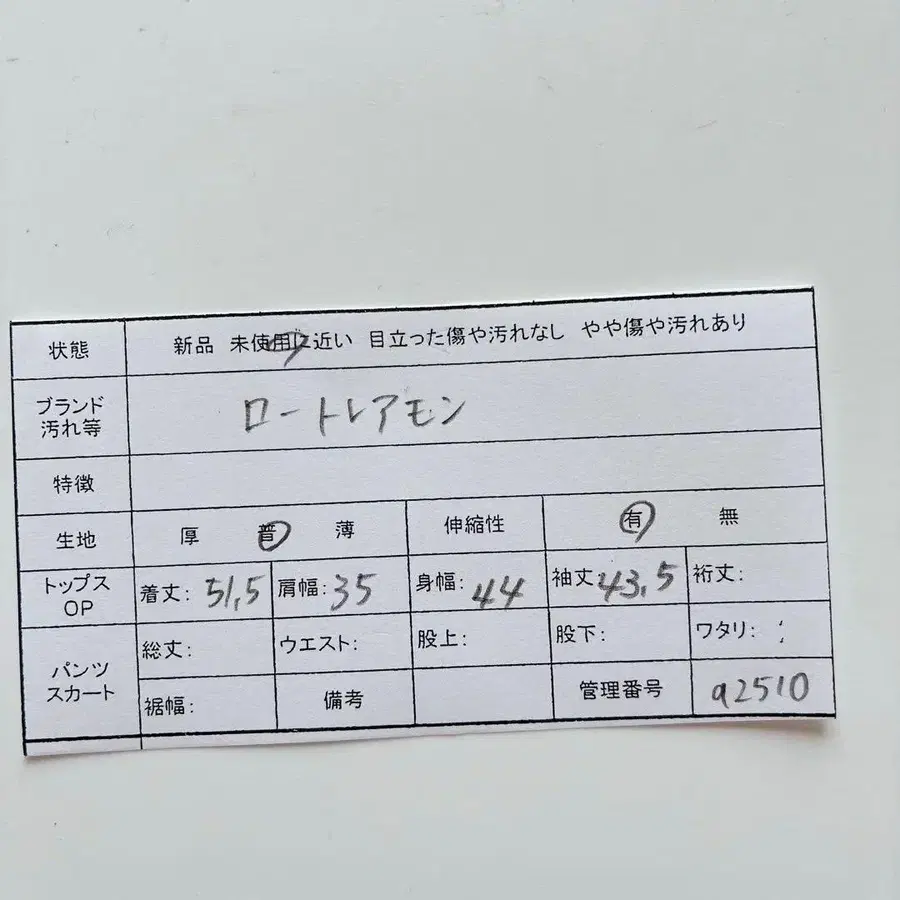 状態 新品 未使用に近い 目立った傷や汚れなし やや傷や汚れあり
ブランド
汚れ等 ロートレアモン
特徴
生地 厚 普 薄 伸縮性 有 無
トップス
OP 着丈: 51,5 肩幅: 35 身幅: 44 袖丈: 43,5 裄丈:
パンツ
スカート 総丈: ウエスト: 股上: 股下: ワタリ:
裾幅: 備考 管理番号 a2510